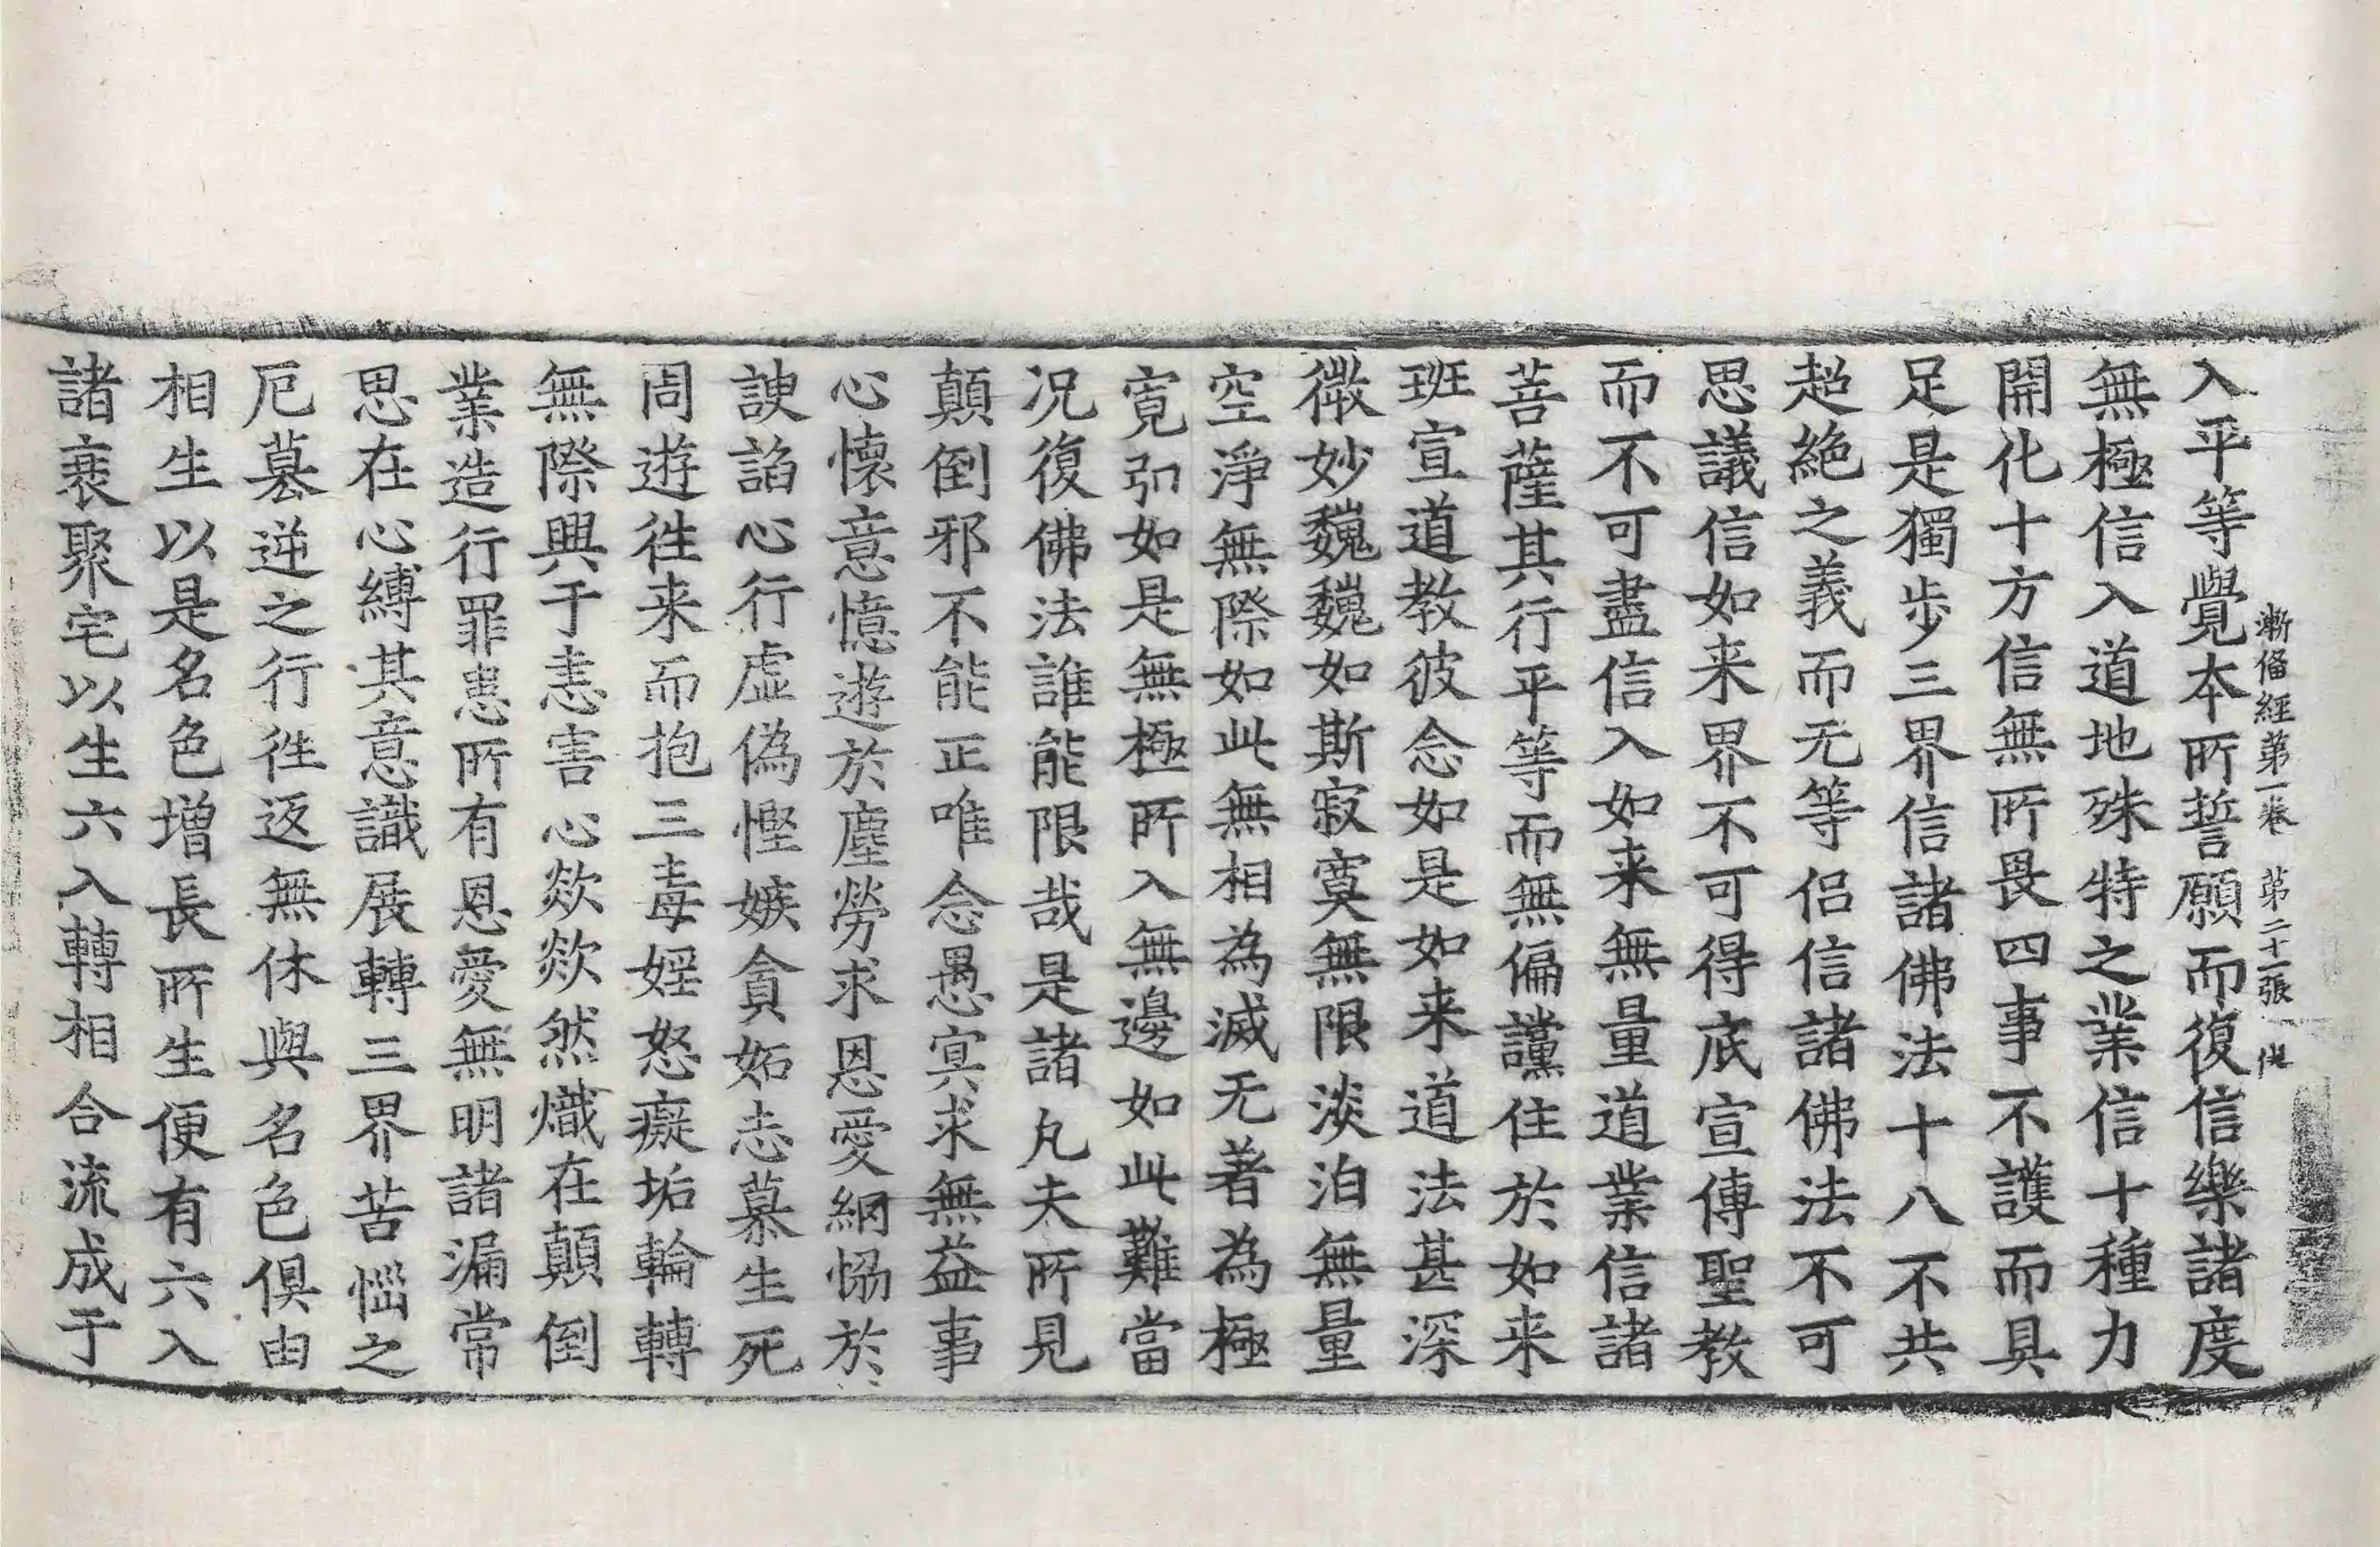 漸俻經第一卷　第二十一張　俱
入平等覺本所誓願而復信樂諸度
無極信入道地殊特之業信十種力
開化十方信無所畏四事不護而具
足是獨步三界信諸佛法十八不共
超絶之義而无等侶信諸佛法不可
思議信如来界不可得底宣傳聖教
而不可盡信入如来無量道業信諸
菩薩其行平等而無偏讜住於如来
班宣道教彼念如是如来道法甚深
微妙巍巍如斯寂寞無限淡泊無量
空淨無際如此無相為滅无著為極
寛弘如是無極所入無邊如此難當
况復佛法誰能限哉是諸凡夫所見
顛倒邪不能正唯念愚冥求無益事
心懷意憶遊於塵勞求恩愛網愶於
諛諂心行虛偽慳嫉貪妬志慕生死
周遊往来而抱三毒婬怒癡垢輪轉
無際興于恚害心欻欻然熾在顛倒
業造行罪患所有恩愛無明諸漏常
思在心縛其意識展轉三界苦惱之
厄墓逆之行往返無休與名色俱由
相生以是名色增長所生便有六入
諸衰聚宅以生六入轉相合流成于